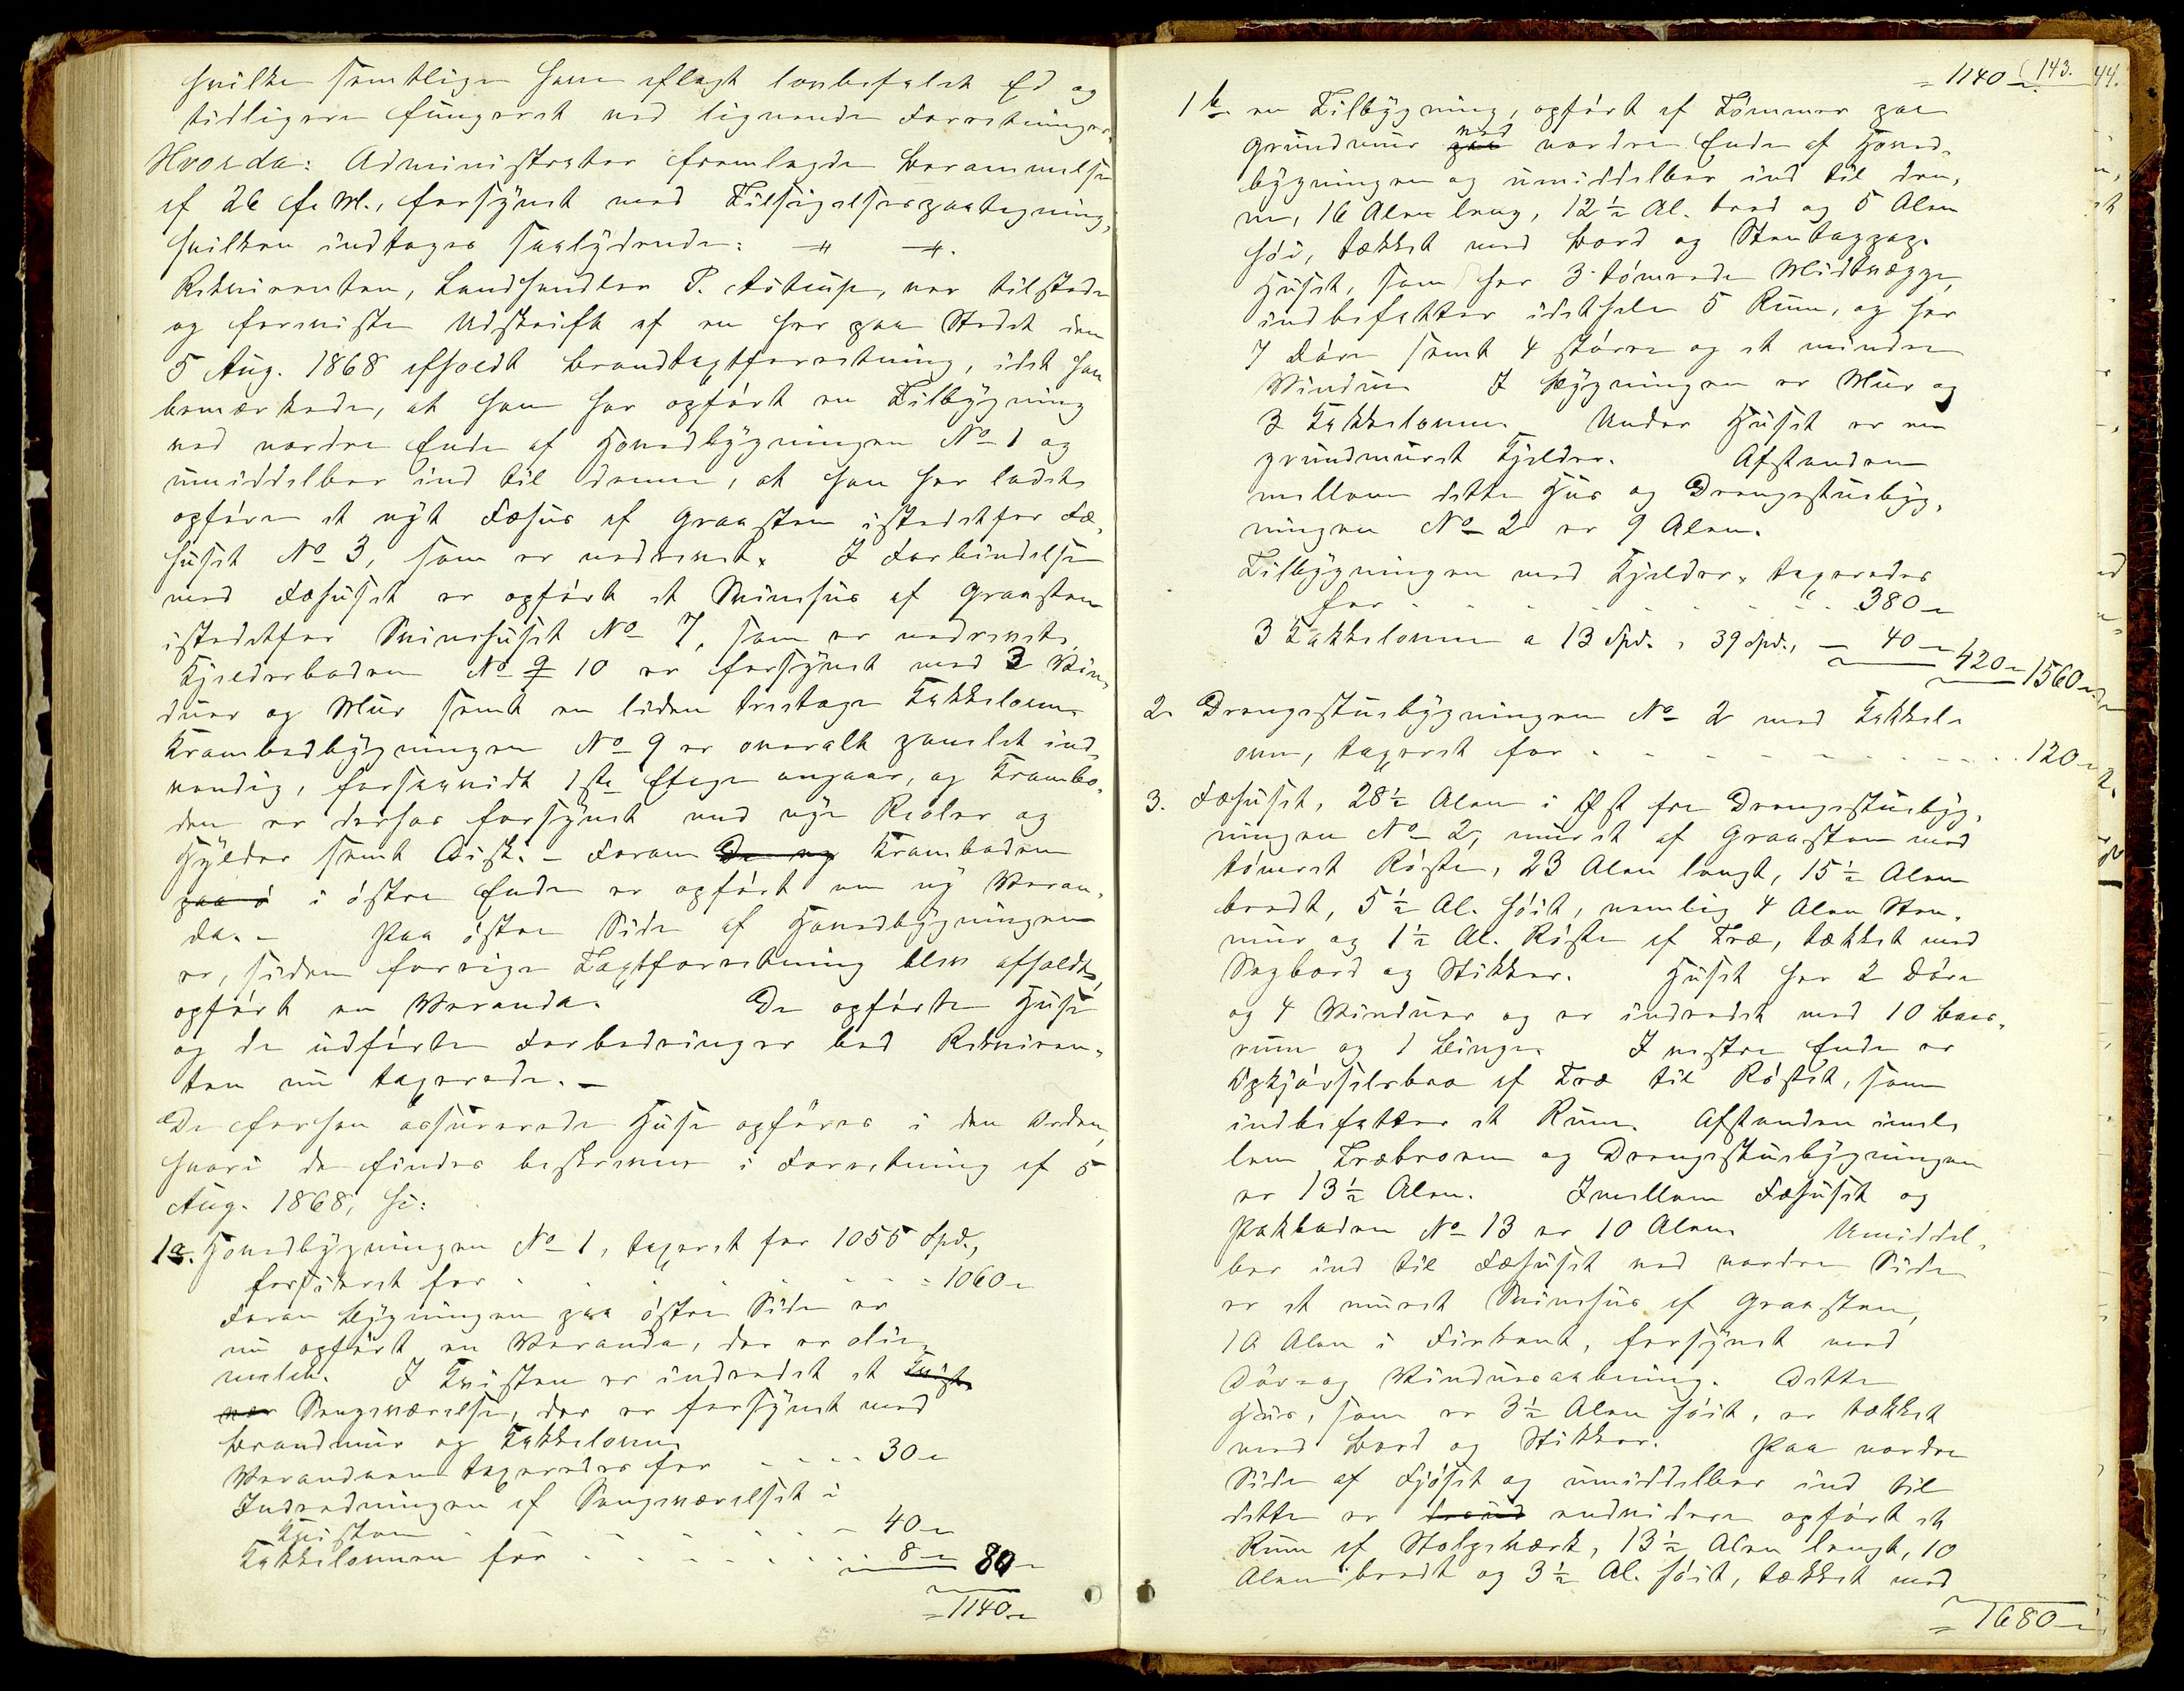 hvilke samtlige have aflagt lovbefalet Ed og
tidligere fungeret ved lignende Forretninger.
Hvorda: Administrator fremlagde Berammelse
af 26 f. M., forsynet med Tilsigelsespaategning,
hvilken indtages saalydende: -"- -"-.
Rekvirenten, Landhandler P. Astrup, var tilstede
og foreviste Udskrift af en her paa Stedet den
5 Aug. 1868 afholdt Brandtaxtforretning, idet han
bemærkede, at han har opført en Tilbygning
ved nordre Ende af Hovedbygningen No 1 og
umiddelbar ind til denne, at han har ladet
opføre et nyt Fæhus af Graasten istedetfor Fæ-
huset No 3, som er nedrevet. I Forbindelse
med Fæhuset er opført et Svinehus af Graasten
istedetfor Svinehuset No 7, som er nedrevet,
Kjelderboden No 9 10 er forsynet med 3 Vin-
duer og Mur samt en liden treetages Kakkelovn.
Krambodbygningen No 9 er overalt panelet ind-
vendig, forsaavidt 1ste Etage angaar, og Krambo-
den er derhos forsynet med nye Reoler og
Hylder samt Disk. - Foran De ny Kramboden
paa ø i østre Ende er opført en ny Veran-
da. - Paa østre Side af Hovedbygningen
er, siden forrige Taxtforretning blev afholdt,
opført en Veranda. De opførte Huse
og de udførte Forbedringer bad Rekviren-
ten nu taxerede. -
De forhen assurerede Huse opføres i den Orden,
hvori de findes beskrevne i Forretning af 5
Aug. 1868, hs:
1a. Hovedbygningen No 1, taxeret for 1055 Spd.,
forsikret for . . . . . . . = 1060 -
Foran Bygningen paa østre Side er
nu opført en Veranda, der er olie-
malet. I Kvisten er indredet et Kvist-
vær Sengeværelse, der er forsynet med
Brandmur og Kakkelovn.
Verandaen taxeredes for . . . . 30 -
Indredningen af Sengeværelset i
Kvisten . . . . . . 40 -
Kakkelovnen for . . . . . . 8 - 80 -
= 1140 -
143.
= 1140 -
1 b. en Tilbygning, opført af Tømmer paa
Grundmur paa ved nordre Ende af Hoved-
bygningen og umiddelbar ind til den-
ne, 16 Alen lang, 12 ½ Al. bred og 5 Alen
høi, tækket med Bord og Stentagpap.
Huset, som har 3 tømrede Midtvægge,
indbefatter idethele 5 Rum, og har
7 Døre samt 4 større og et mindre
Vindue. I Bygningen er Mur og
3 Kakkelovne. Under Huset er en
grundmuret Kjelder. Afstanden
mellem dette Hus og Drengestuebyg-
ningen No 2 er 9 Alen.
Tilbygningen med Kjelder taxeredes
for . . . . . . . . 380 -
3 Kakkelovne a 13 Spd. = 39 Spd., - 40 - 420 - 1560 -
2. Drengestuebygningen No 2 med Kakkel-
ovn, taxeret for . . . . . . . . . 120 -
3. Fæhuset, 28 ½ Alen i Øst fra Drengestuebyg-
ningen No 2, muret af Graasten med
tømret Røste, 23 Alen langt, 15 ½ Alen
bredt, 5 ½ Al. høit, nemlig 4 Alen Sten-
mur og 1 ½ Al. Røste af Træ, tækket med
Sagbord og Stikker. Huset har 2 Døre
og 4 Vinduer og er indredet med 10 Baas-
rum og 1 Binge. I vestre Ende er
Opkjørselsbro af Træ til Røstet, som
indbefatter et Rum. Afstanden imel-
lem Træbroen og Drengestuebygningen
er 13 ½ Alen. Imellem Fæhuset og
Pakboden No 13 er 10 Alen. Umiddel-
bar ind til Fæhuset ved nordre Side
er et muret Svinehus af Graasten,
10 Alen i Firkant, forsynet med
Dør- og Vinduesaabning. Dette
Hus, som er 3 ½ Alen høit, er tækket
med Bord og Stikker. Paa nordre
Side af Fjøset og umiddelbar ind til
dette er endvidere opført et
Rum af Stolpeværk, 13 ½ Alen langt, 10
Alen bredt og 3 ½ Al. høit, tækket med
= 1680 -
44.